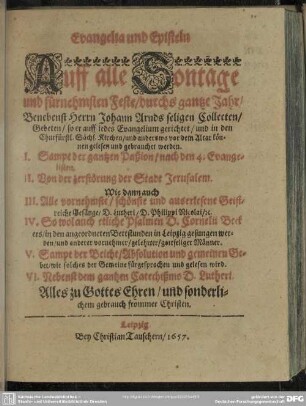 Evangelia und Episteln
Auff alle Sontage
und fürnehmsten Feste/durchs gantze Jahr/
Benebenst Herrn Johann Arnds seligen Collecten/
Gebeten/ so er auff jedes Evangelium gerichtet/ und in den
Churfürstl. Sächs. Kirchen/ und anderswo vor dem Altar kön-
nen gelesen und gebrauchet werden.
I. Sampt der gantzen Passion/ nach den 4. Evange-
listen.
II. Von der zerstörung der Stadt Jerusalem.
Wie dann auch
III. Alle vornehmste/ schönste und auserlesene Geist-
reiche Gesänge/ D. Lutheri/ D. Philippi Nicolai/ ꝛc.
IV. So wol auch etliche Psalmen D. Cornelii Beck
ers/ in den angeordneten Betstunden in Leipzig gesungen wer-
den/ und anderer vornehmer/ gelehrter/ gottseliger Männer.
V. Sampt der Beicht/ Absolution und gemeinen Ge-
bet/ wie solches der Gemeine fürgesprochen und gelesen wird.
VI. Nebenst dem gantzen Catechismo D. Lutheri.
Alles zu Gottes Ehren/ und sonderli-
chem gebrauch frommer Christen.
Leipzig
Bey Christian Tauschern/ 1657.
DFG